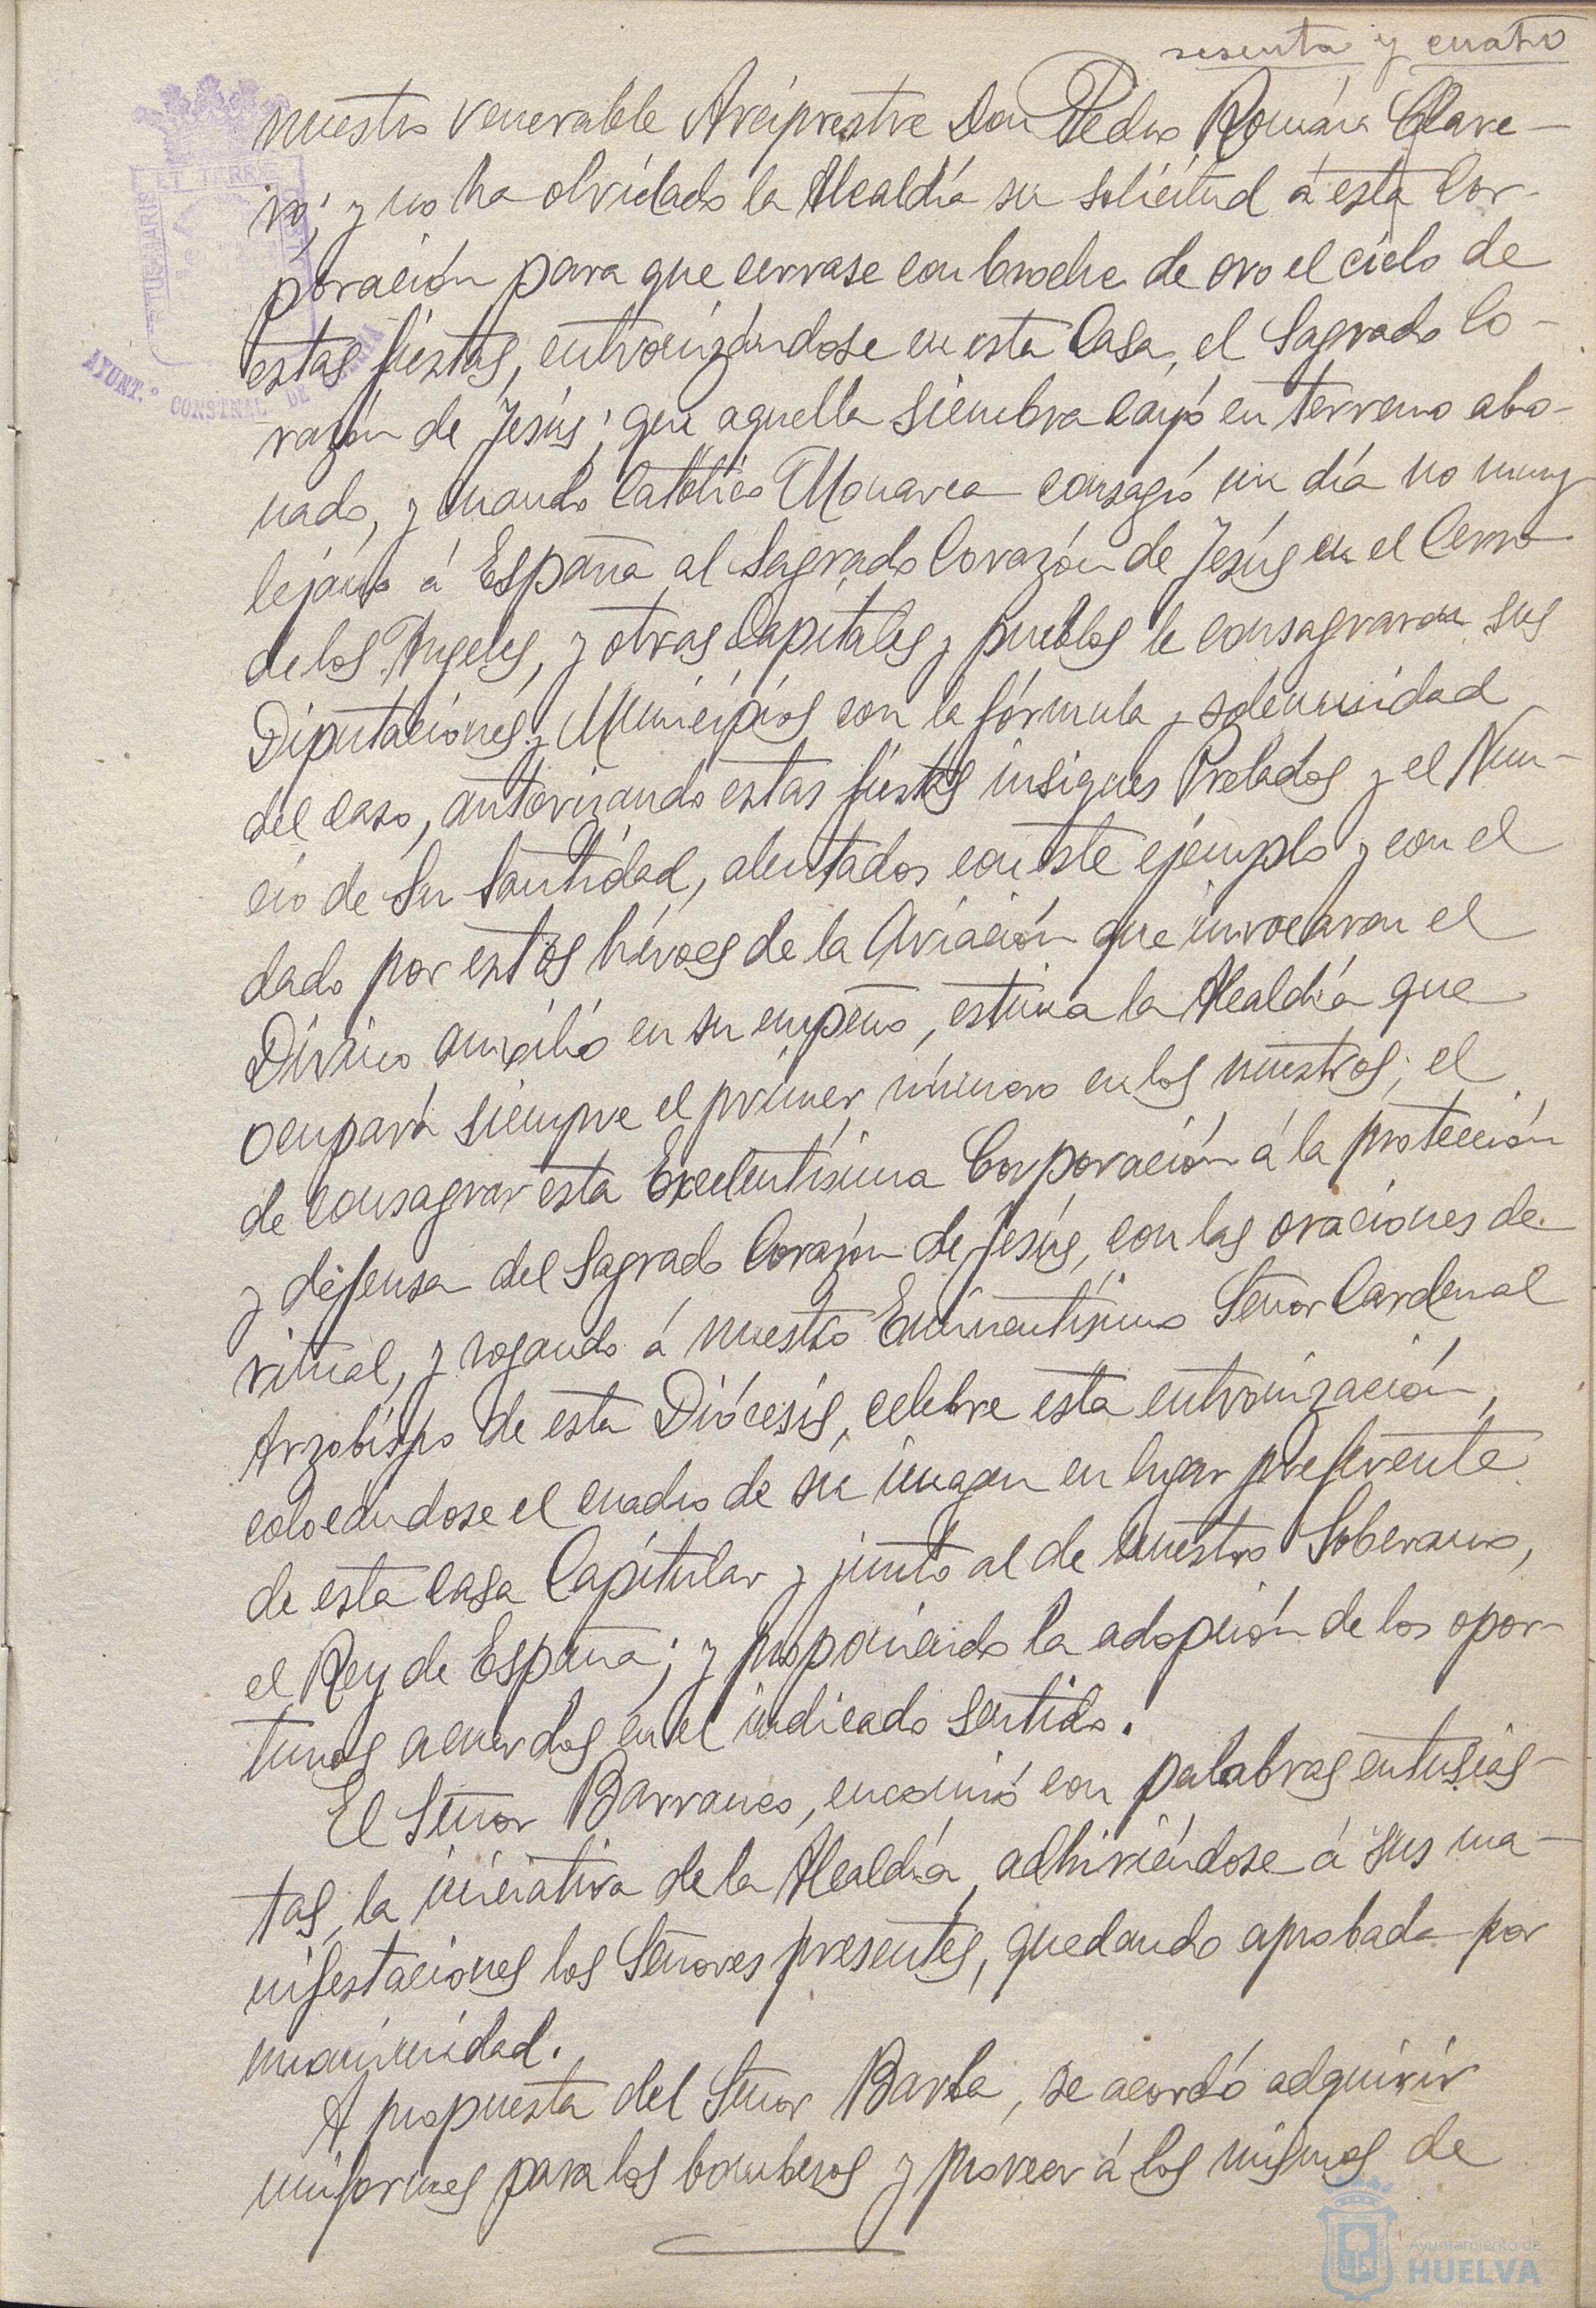 sesenta y cuatro
nuestro venerable Arcipreste Don Pedro Román Clave-
ro; y no ha olvidado la Alcaldía su solicitud á esta Cor-
poración para que cerrase con broche de oro el ciclo de
estas fiestas, entronizándose en esta Casa, el Sagrado Co-
razón de Jesús; que aquella siembra cayó en terreno abo-
nado, y cuando Católico Monarca consagró un día no muy
lejano á España al Sagrado Corazón de Jesús en el Cerro
de los Angeles, y otras Capitales y pueblos le consagraron sus
Diputaciones y Municipios con la fórmula y solemnidad
del caso, autorizando estas fiestas insignes Prelados y el Nun-
cio de Su Santidad, alentados con este ejemplo y con el
dado por estos héroes de la Aviación que invocaron el
Divino auxilio en su empeño, estima la Alcaldía que
ocupará siempre el primer número en los nuestros; el
de consagrar esta Excelentísima Corporación á la protección
y defensa del Sagrado Corazón de Jesús, con las oraciones de
ritual, y rogando á nuestro Eminentísimo Señor Cardenal
Arzobispo de esta Diócesis, celebre esta entronización,
colocándose el cuadro de su imagen en lugar preferente
de esta casa Capitular y junto al de nuestro Soberano,
el Rey de España; y proponiendo la adopción de los opor-
tunos acuerdos en el indicado sentido.
El Señor Barranco, encomió con palabras entusias-
tas, la iniciativa de la Alcaldía, adhiriéndose á sus ma-
nifestaciones los Señores presentes, quedando aprobada por
unanimidad.
A propuesta del Señor Barba, se acordó adquirir
uniformes para los bomberos y proveer á los mismos de
AYUNT.º CONSTNAL DE
Ayuntamiento de
HUELVA